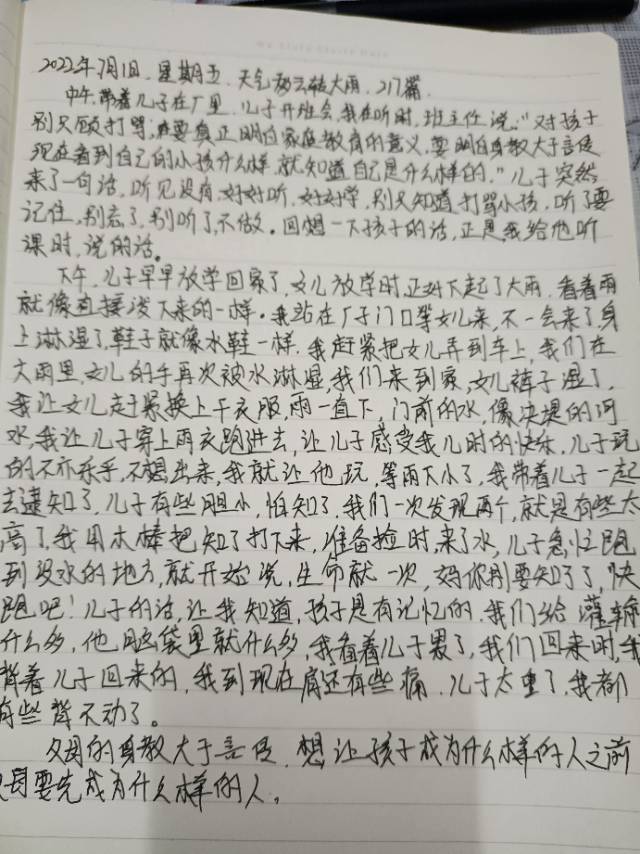 2022年7月1日. 星期五. 天气多云转大雨. 217篇.
中午, 带着儿子在厂里. 儿子开班会, 我在听时, 班主任说:"对孩子
别只顾打骂, 要真正明白家庭教育的意义, 要明白身教大于言传
现在看到自己的小孩什么样, 就知道自己是什么样的."儿子突然
来了一句话, 听见没有, 好好听, 好好学, 别只知道打骂小孩, 听了要
记住, 别忘了, 别听了, 不做. 回想一下孩子的话, 正是我给他听
课时, 说的话.
下午, 儿子早早放学回家了, 女儿放学时, 正好下起了大雨, 看着雨
就像直接泼下来的一样. 我站在厂子门口等女儿来, 不一会来了, 身
上淋湿了, 鞋子就像水鞋一样. 我赶紧把女儿弄到车上, 我们在
大雨里, 女儿的手再次被水淋湿, 我们来到家, 女儿裤子湿了,
我让女儿赶紧换上干衣服, 雨一直下, 门前的水, 像决堤的河
水, 我让儿子穿上雨衣跑进去, 让儿子感受我儿时的快乐, 儿子玩
的不亦乐乎, 不想出来, 我就让他玩, 等雨下小了, 我带着儿子一起
去逮知了, 儿子有些胆小, 怕知了, 我们一次发现两个, 就是有些太
高了, 我用木棒把知了打下来, 准备捡时, 来了水, 儿子急忙跑
到没水的地方, 就开始说, 生命就一次, 妈你别要知了了, 快
跑吧! 儿子的话, 让我知道, 孩子是有记忆的. 我们给灌输
什么多, 他脑袋里就什么多, 我看着儿子累了, 我们回来时, 我
背着儿子回来的, 我到现在肩还有些痛. 儿子太重了, 我都
有些背不动了.
父母的身教大于言传, 想让孩子成为什么样的人之前
父母要先成为什么样的人.